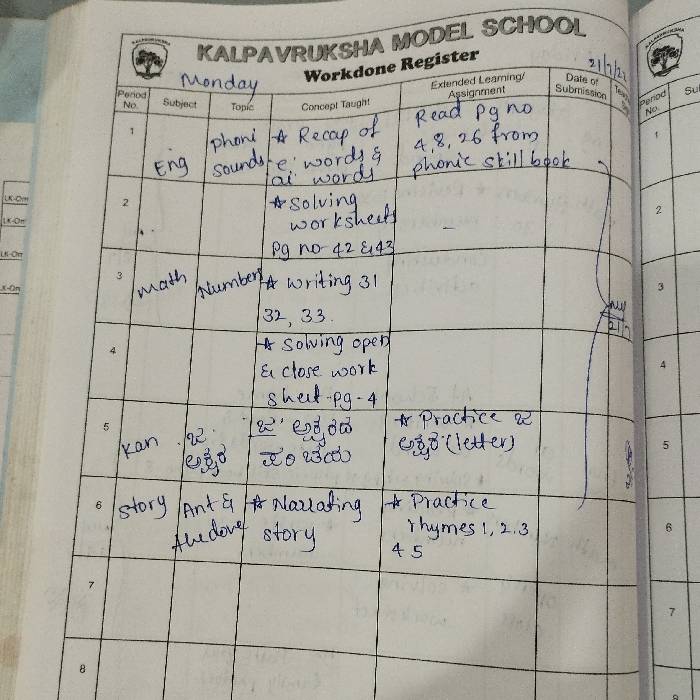 KALPAVRUKSHA MODEL SCHOOL
Workdone Register
Monday
Period No. Subject Topic Concept Taught Extended Learning/ Assignment Date of Submission
1 Eng phoni sounds ☆ Recap of 'e' words & ai words Read Pg no 4, 8, 26 from phonic skill book
2 ☆ Solving worksheets Pg no-42 & 43 -
3 Math Numbers ☆ Writing 31 32, 33.
4 ☆ Solving open & close work sheet-pg-4
5 Kan ಜ ಅಕ್ಷರ 'ಜ' ಅಕ್ಷರದ ಪರಿಚಯ ☆ Practice ಜ ಅಕ್ಷರ (letter)
6 Story Ant & the dove ☆ Narrating story ☆ Practice rhymes 1, 2, 3 4 5
7
8
Period No.
1
2
3
4
5
6
7
8